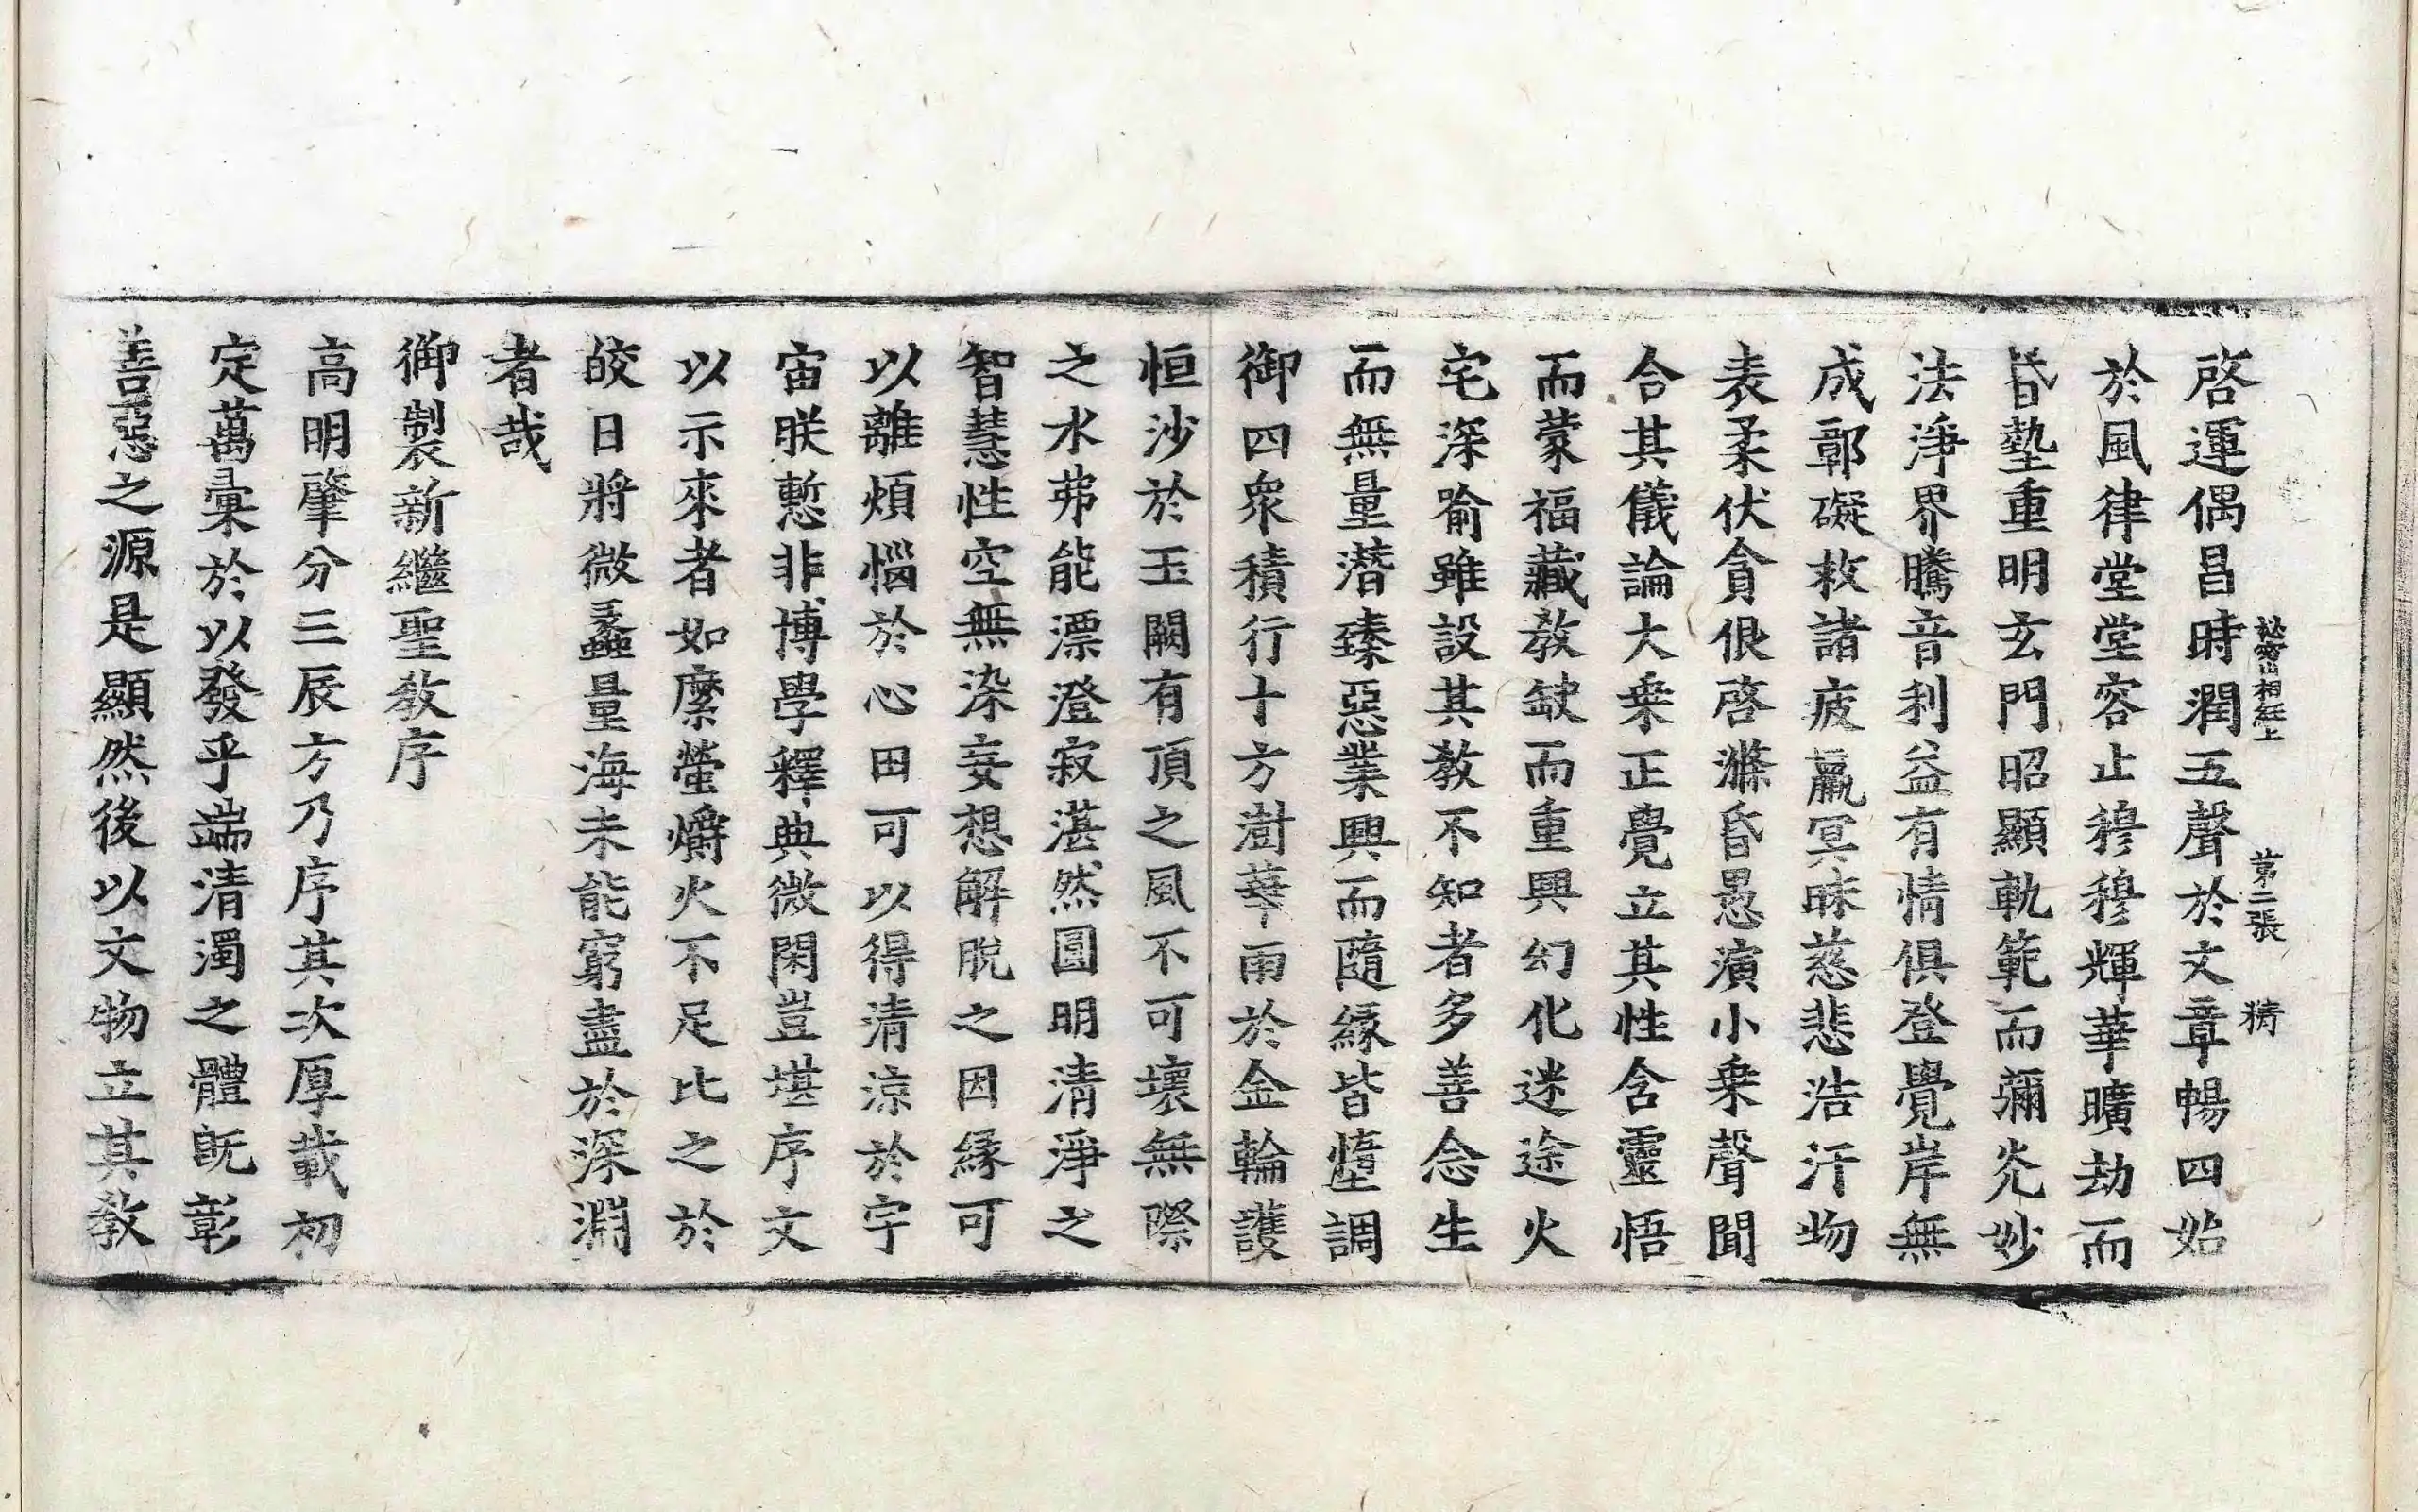 啓運偶昌時潤五聲於文章暢四始
於風律堂堂容止穆穆輝華曠劫而
昏墊重明玄門昭顯軌範而彌光妙
法淨界騰音利益有情俱登覺岸無
成鄣礙救諸疲羸冥昧慈悲浩汗物
表柔伏貪佷啓滌昏愚演小乗聲聞
合其儀論大乗正覺立其性含靈悟
而蒙福藏教缺而重興幻化迷途火
宅深喻雖設其教不知者多善念生
而無量潛臻惡業興而隨縁皆墮調
御四衆積行十方澍華雨於金輪護
恒沙於玉闕有頂之風不可壞無際
之水弗能漂澄寂湛然圓明清淨之
智慧性空無染妄想解脫之因縁可
以離煩惱於心田可以得清涼於宇
宙朕慙非博學釋典微閑豈堪序文
以示來者如縻螢爝火不足比之於
皎日將微蠡量海未能窮盡於深淵
者哉
御製新繼聖教序
高明肇分三辰方乃序其次厚載初
定萬彙於以發乎端清濁之體旣彰
善惡之源是顯然後以文物立其教
第二張